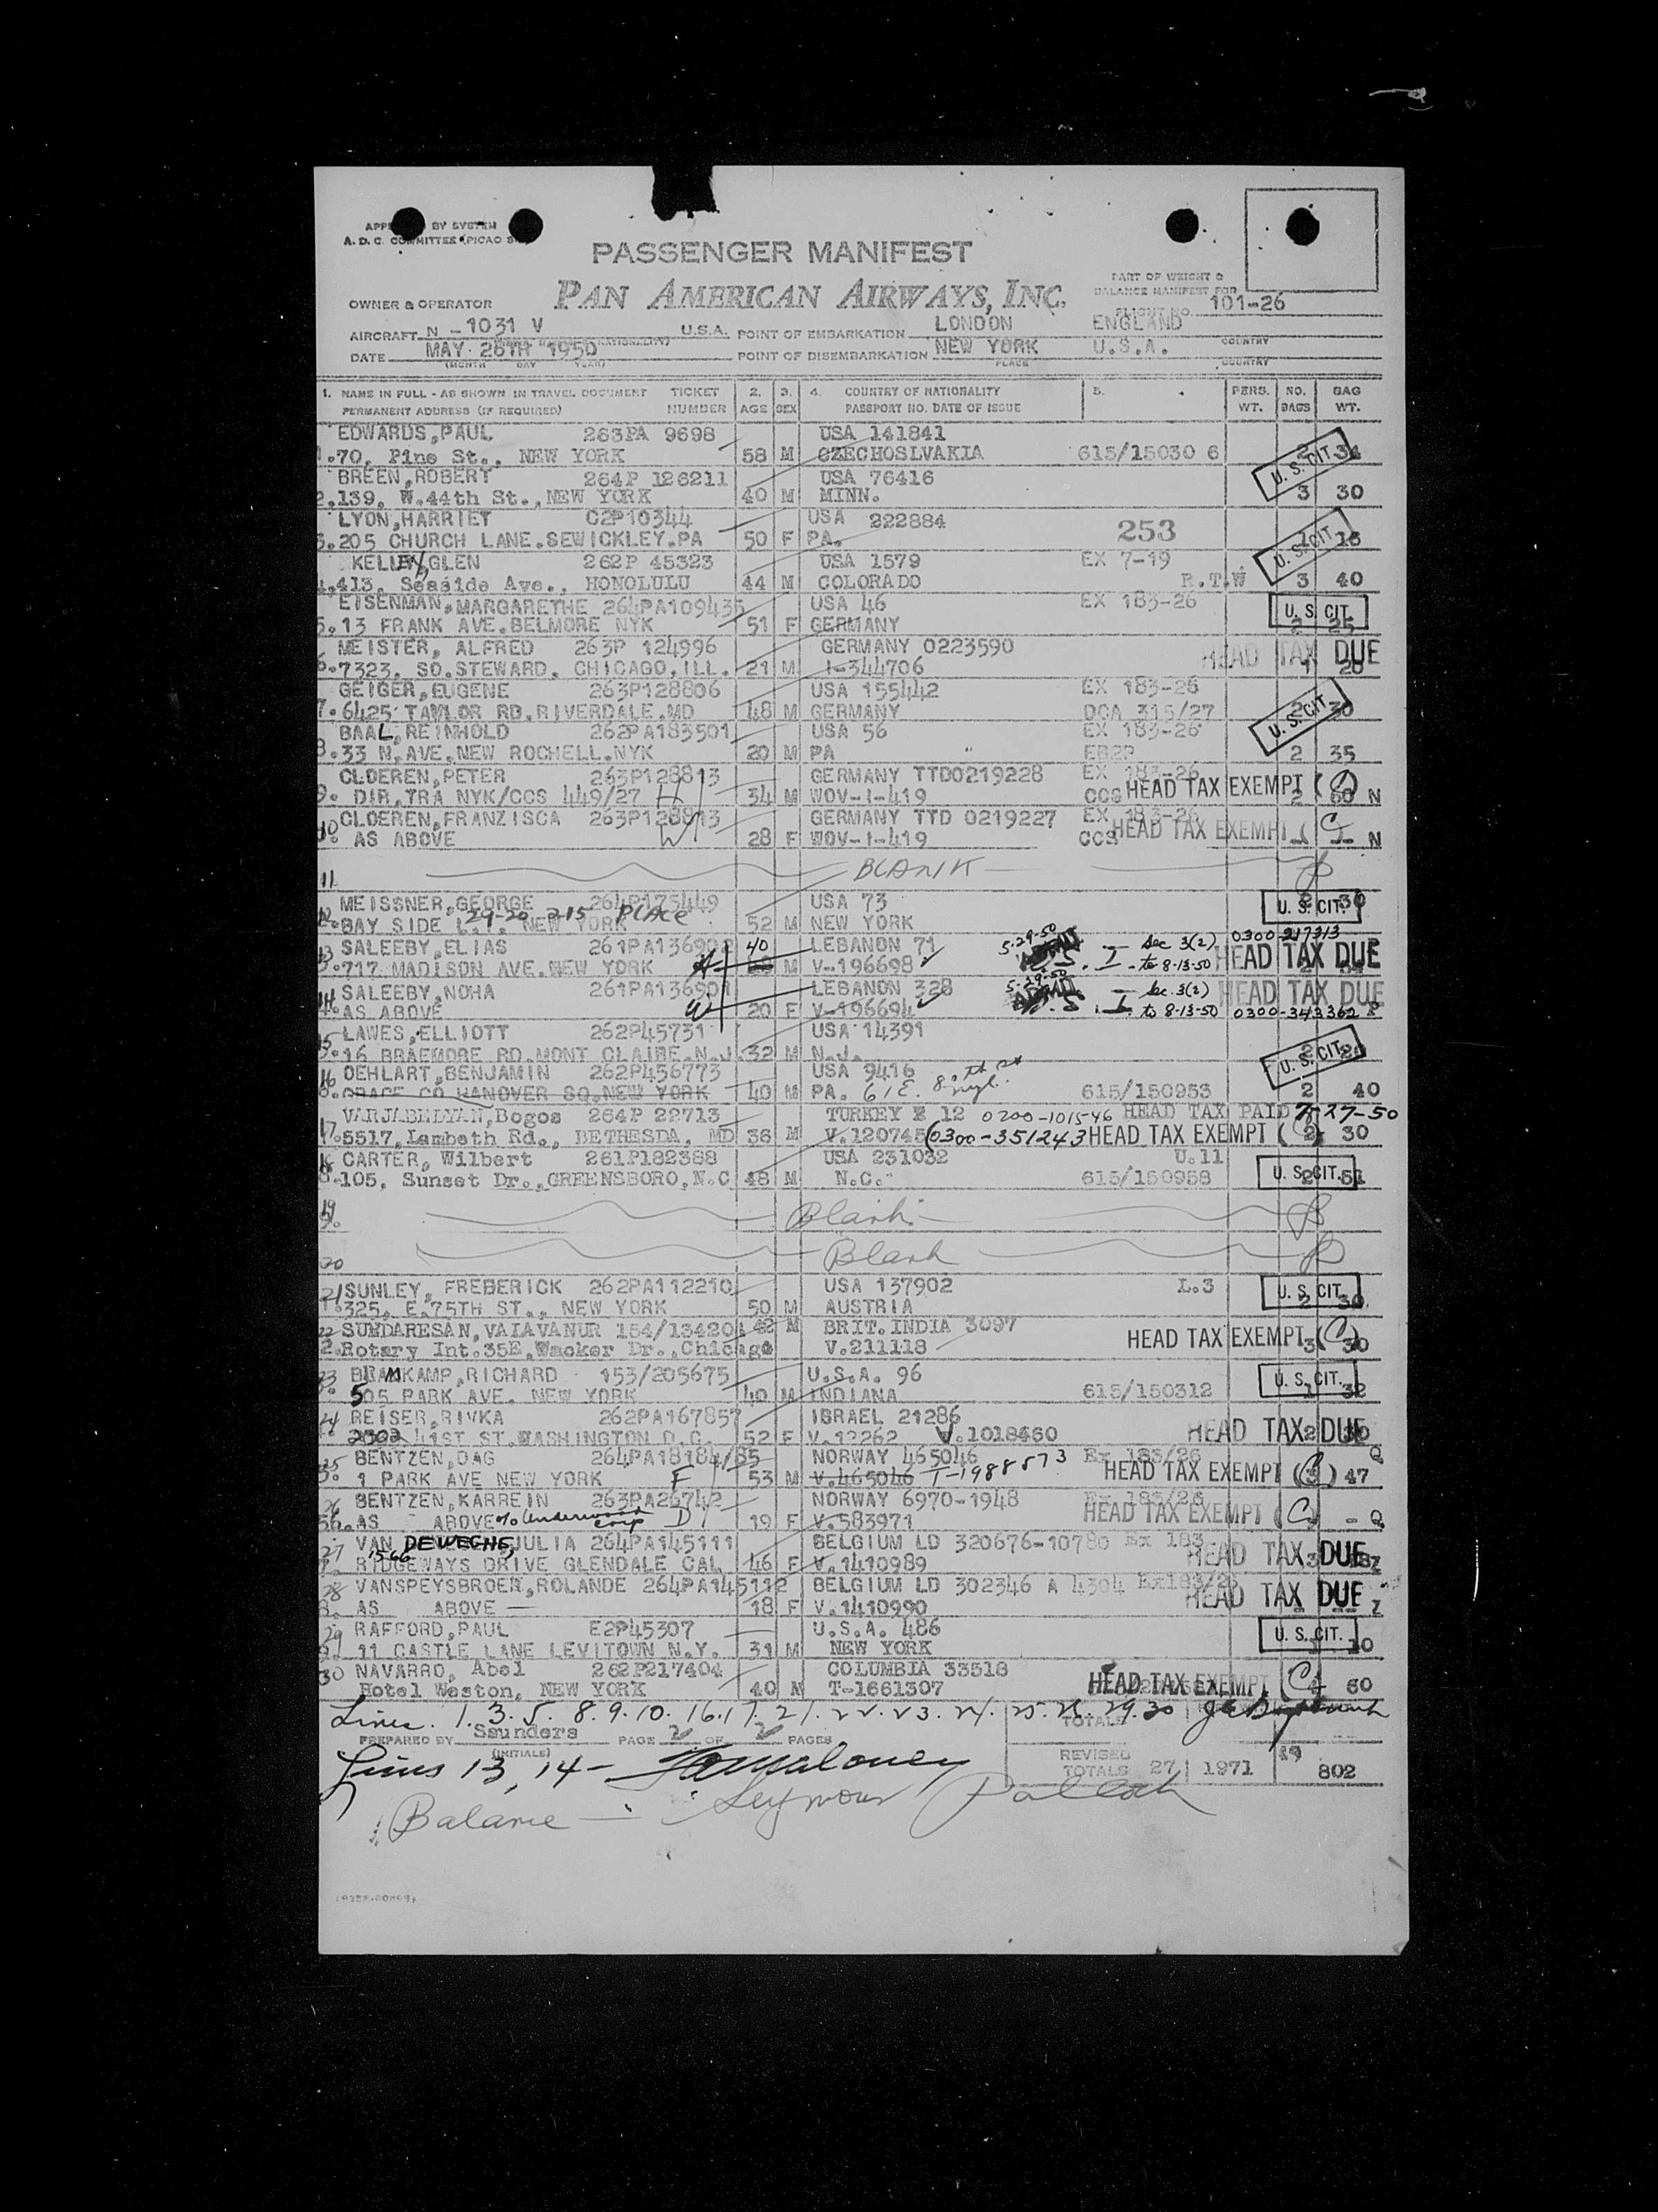 PASSENGER MANIFEST
PAN AMERICAN AIRWAYS, INC.
PART OF WEIGHT &
BALANCE MANIFEST FOR
FLIGHT NO. 101-26
OWNER & OPERATOR
AIRCRAFT N - 1031 V U.S.A. POINT OF EMBARKATION LONDON ENGLAND COUNTRY
DATE MAY 26TH 1950 POINT OF DISEMBARKATION NEW YORK U.S.A.
(MONTH DAY YEAR) PLACE COUNTRY
1. NAME IN FULL - AS SHOWN IN TRAVEL DOCUMENT TICKET 2. 3. 4. COUNTRY OF NATIONALITY 5. PERS. NO. BAG
PERMANENT ADDRESS (IF REQUIRED) NUMBER AGE SEX PASSPORT NO. DATE OF ISSUE WT. BAGS WT.
EDWARDS,PAUL 263PA 9698 USA 141841
70, Pine St., NEW YORK 58 M CZECHOSLVAKIA 615/15030 6 2 34
U. S. CIT.
BREEN,ROBERT 264P 126211 USA 76416
2.139, W.44th St.,NEW YORK 40 M MINN. 3 30
LYON,HARRIET C2P10344 USA 222884 253
205 CHURCH LANE.SEWICKLEY.PA 50 F PA. 16
U. S. CIT.
KELLEY,GLEN 262P 45323 USA 1579 EX 7-19
413, Seaside Ave., HONOLULU 44 M COLORADO R.T.W 3 40
EISENMAN,MARGARETHE USA 46 EX 183-26
5.13 FRANK AVE.BELMORE NYK 51 F GERMANY 2 25
U. S. CIT
MEISTER, ALFRED 263P 124996 GERMANY 0223590
7323, SO.STEWARD, CHICAGO,ILL. 21 M I-344706 HEAD TAX DUE
GEIGER,EUGENE 263P128806 USA 155442 EX 183-26
7.6425 TAYLOR RD.RIVERDALE.MD 48 M GERMANY DCA 315/27 2 30
U. S. CIT.
BAAL,REINHOLD 262PA183501 USA 56 EX 183-26
33 N.AVE.NEW ROCHELL.NYK 20 M PA 2 35
CLOEREN,PETER 263P128813 GERMANY TTD0219228 EX 183-26
9. DIR.TRA NYK/CCS 449/27 H 34 M WOV-I-419 CCS HEAD TAX EXEMPT 2 60 N
10 CLOEREN,FRANZISCA 263P128813 GERMANY TTD 0219227 EX 183-26
AS ABOVE W 28 F WOV-I-419 CCS HEAD TAX EXEMPT N
11 BLANK
MEISSNER,GEORGE 264P175449 USA 73
BAY SIDE L.I. NEW YORK 29-20 215 PLACE 52 M NEW YORK U. S. CIT.
13 SALEEBY,ELIAS 40 LEBANON 71 5-29-50 Sec 3(2) 0300-217313
717 MADISON AVE.NEW YORK M V-196698 to 8-13-50 HEAD TAX DUE
14 SALEEBY,NOHA 261PA136901 LEBANON 328 5-29-50 Sec. 3(2) HEAD TAX DUE
AS ABOVE W 20 F V-196694 to 8-13-50 0300-343362
15 LAWES,ELLIOTT 262P45731 USA 14391
16 BRAEMORE RD.MONT CLAIRE.N.J. 32 M N.J.
U. S. CIT.
16 OEHLART,BENJAMIN 262P456773 USA 9416
GRACE CO HANOVER SQ.NEW YORK 40 M PA. 61 E. 615/150953 2 40
VARJABEDYAN,Bogos 264P 22713 TURKEY 12 0200-101546 HEAD TAX PAID 7-27-50
17.5517,Lambeth Rd., BETHESDA, MD 36 M V.120745 0300-351243 HEAD TAX EXEMPT 2 30
18 CARTER, Wilbert 261P182388 USA 231032 U.11
105, Sunset Dr.,GREENSBORO,N.C 48 M N.C. 615/150958 U. S. CIT. 51
19 Blank
20 Blank
21 SUNLEY, FREDERICK 262PA112210 USA 137902 L.3
325, E.75TH ST., NEW YORK 50 M AUSTRIA U. S. CIT. 2 30
22 SUNDARESAN,VAIAVANUR 154/134204 42 M BRIT.INDIA 3097
2.Rotary Int.35E,Wacker Dr.,Chicago V.211118 HEAD TAX EXEMPT 3 30
23 BRAMKAMP,RICHARD 153/205675 U.S.A. 96
505 PARK AVE. NEW YORK 40 M INDIANA 615/150312 U. S. CIT. 1 32
24 REISER,RIVKA 262PA167857 ISRAEL 21286
41ST ST.WASHINGTON D.C. 52 F V.12262 V.1018460 HEAD TAX DUE 2 30
25 BENTZEN,DAG 264PA18184/85 NORWAY 465046 Ex 183/26 Q
1 PARK AVE NEW YORK F 53 M V.465046 T-1988573 HEAD TAX EXEMPT 3 47
26 BENTZEN,KARREIN 263PA26742 NORWAY 6970-1948 Ex 183/26
AS ABOVE c/o Underwood Corp D 19 F V.583971 HEAD TAX EXEMPT - Q
27 VAN DEWEGHE,JULIA 264PA145111 BELGIUM LD 320676-10780 Ex 183
1566 RIDGEWAYS DRIVE GLENDALE CAL 46 F V.1410989 HEAD TAX DUE Z
28 VANSPEYSBROEK,ROLANDE 264PA145112 BELGIUM LD 302346 A 4304 Ex183/26
AS ABOVE 18 F V.1410990 HEAD TAX DUE Z
29 RAFFORD,PAUL E2P45307 U.S.A. 486
11 CASTLE LANE LEVITOWN N.Y. 31 M NEW YORK U. S. CIT. 10
30 NAVARRO, Abel 262P217404 COLUMBIA 33518
Hotel Weston, NEW YORK 40 M T-1661307 HEAD TAX EXEMPT 60
Lines. 1. 3. 5. 8. 9. 10. 16. 17. 21. 22. 23. 24. 25. 26. 29. 30
PREPARED BY Saunders PAGE 2 OF 2 PAGES TOTALS
(INITIALS)
REVISED TOTALS 27 1971 49 802
Lines 13, 14 - Maloney
Balance - Seymour